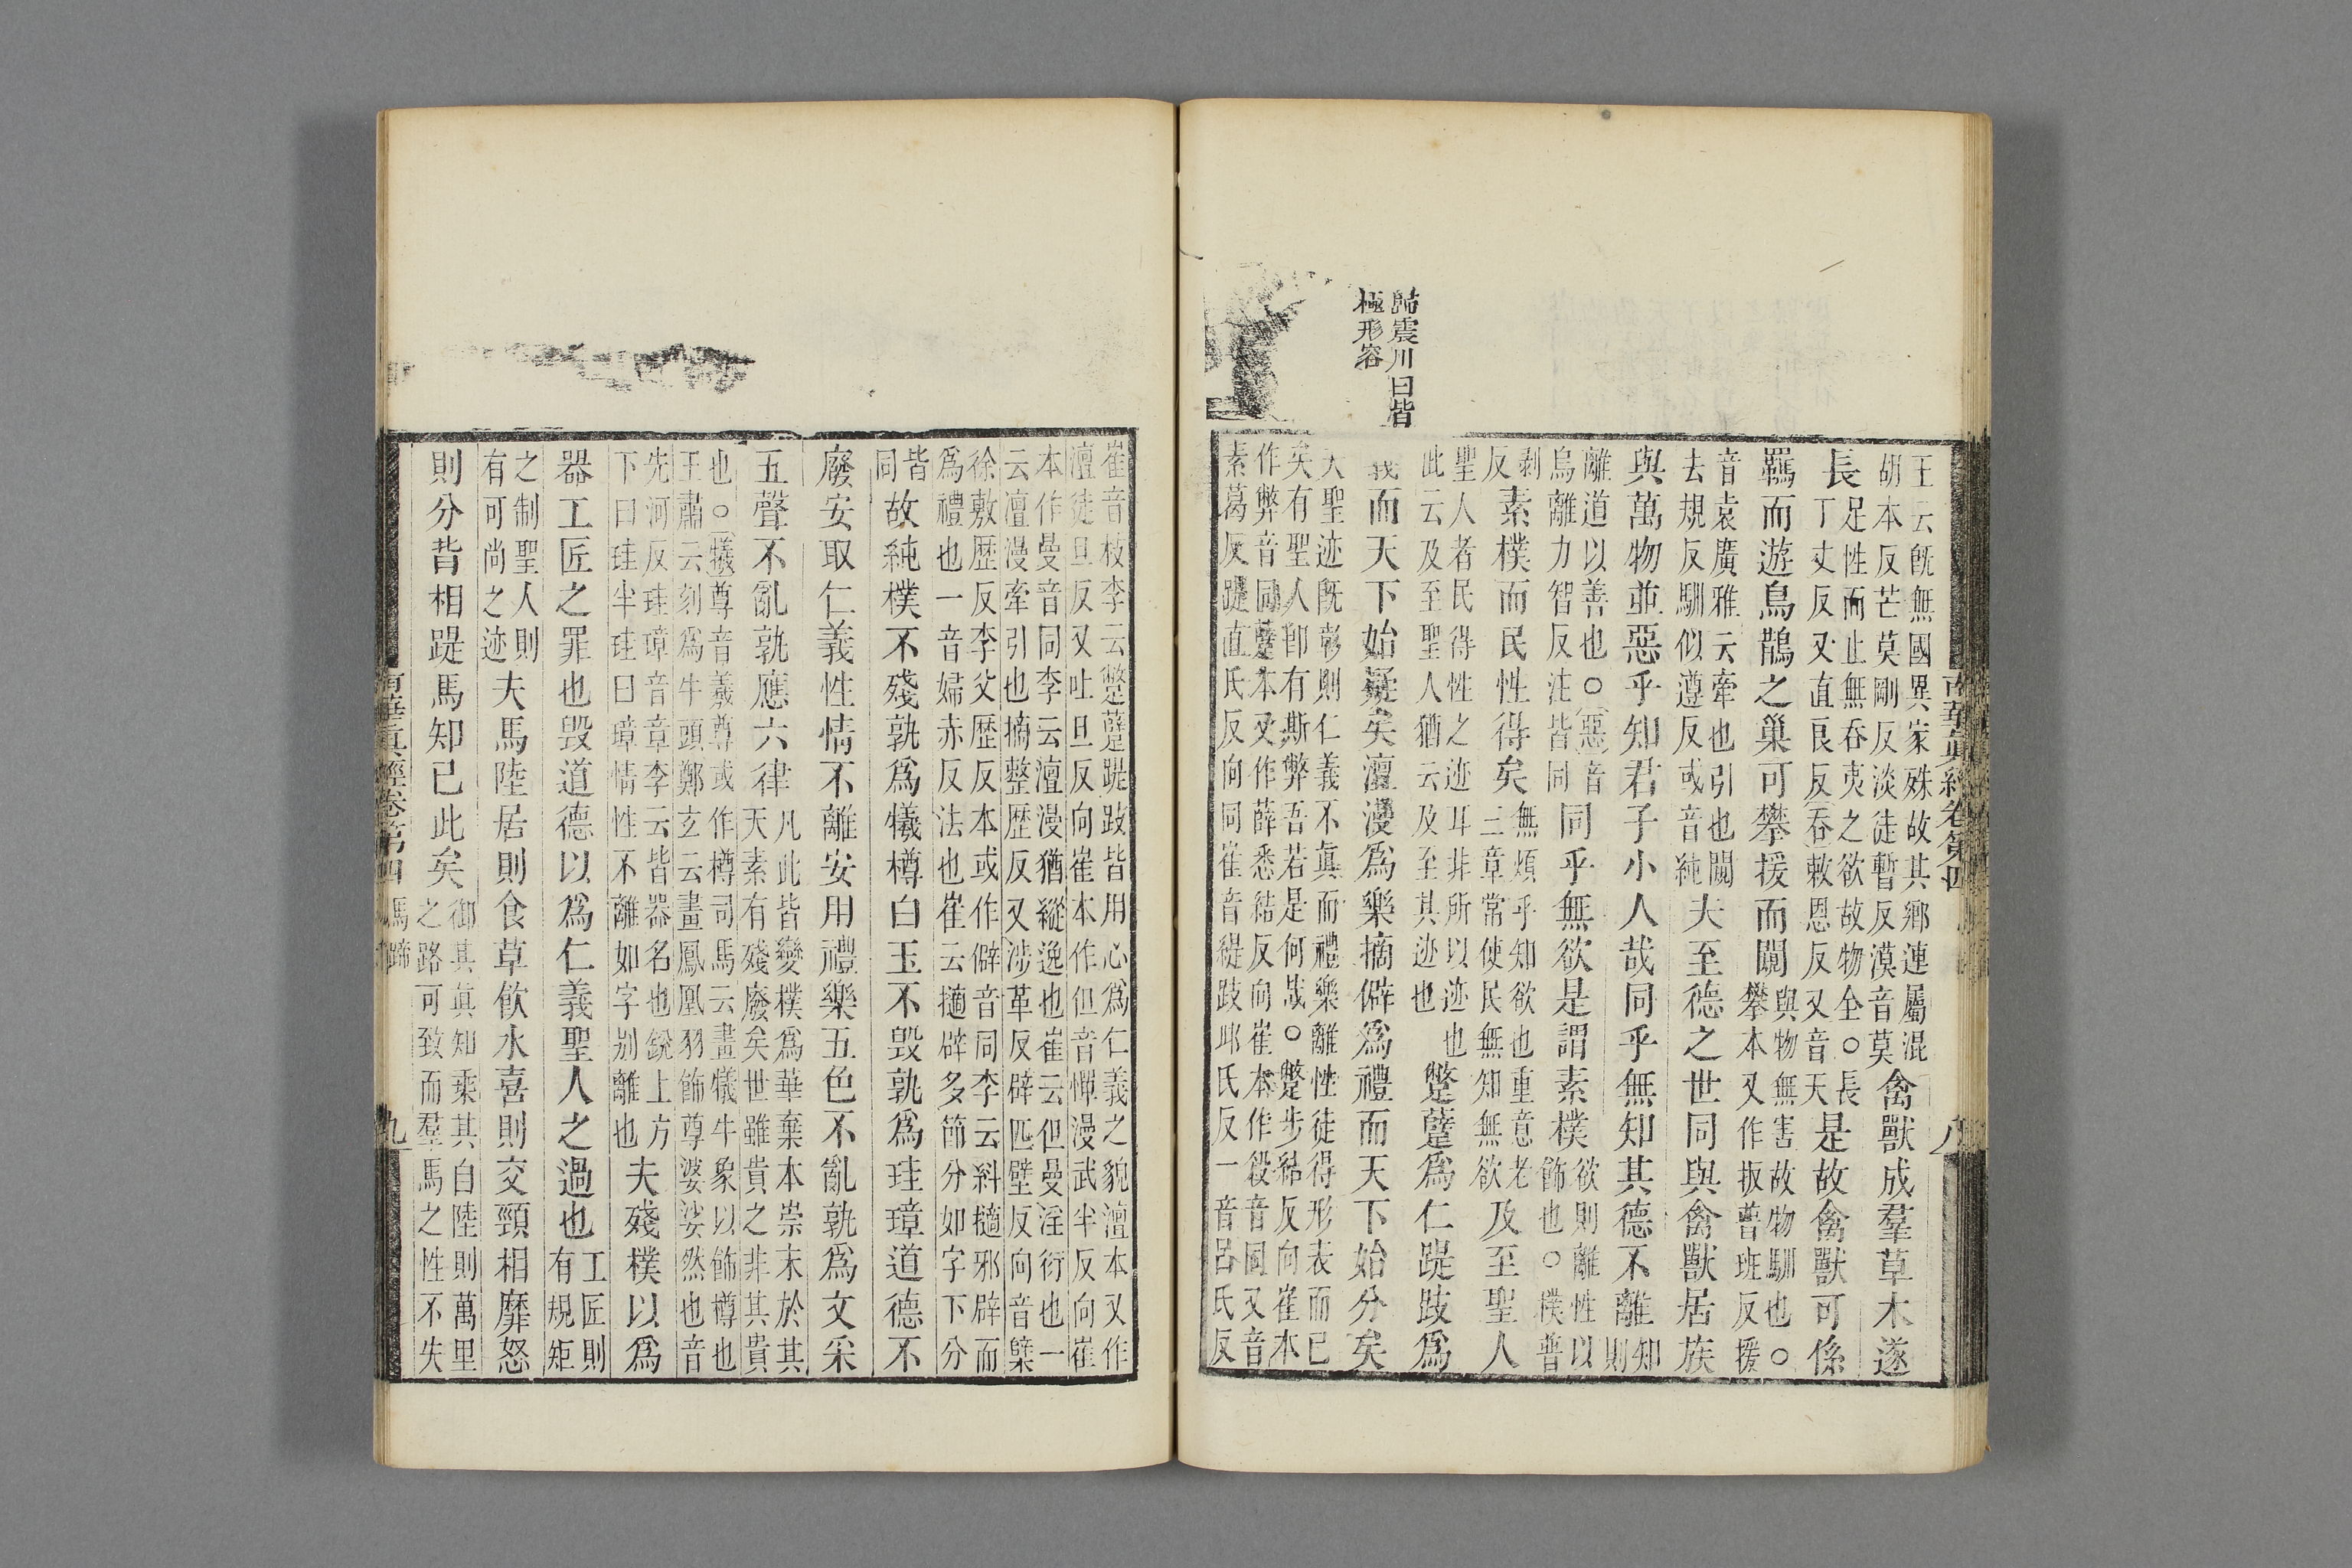 歸震川曰皆
極形容
南華眞經卷第四 八
王云旣無國異家殊故其鄉連屬混
胡本反芒莫剛反淡徒暫反漠音莫
禽獸成羣草木遂
長
足性而止無吞夷之欲故物全○長
丁丈反又直良反吞敕恩反又音天
是故禽獸可係
羈而遊鳥鵲之巢可攀援而闚
與物無害故物馴也○
攀本又作扳普班反援
音袁廣雅云牽也引也闚
去規反馴似遵反或音純
夫至德之世同與禽獸居族
與萬物並惡乎知君子小人哉同乎無知其德不離
知
則
離道以善也○惡音
烏離力智反注皆同
同乎無欲是謂素樸
欲則離性以
飾也○樸普
剥
反
素樸而民性得矣
無煩乎知欲也重意老
三章常使民無知無欲
及至聖人
聖人者民得性之迹耳非所以迹也
此云及至聖人猶云及至其迹也
蹩躠爲仁踶跂爲
義而天下始疑矣澶漫爲樂摘僻爲禮而天下始分矣
夫聖迹旣彰則仁義不眞而禮樂離性徒得形表而已
矣有聖人卽有斯弊吾若是何哉○蹩步結反向崔本
作弊音同躠本又作薛悉結反向崔本作殺音同又音
素葛反踶直氏反向同崔音緹跂邱氏反一音呂氏反
崔音枝李云蹩躠踶跂皆用心爲仁義之貌澶本又作
澶徒旦反又吐旦反向崔本作但音憚漫武半反向崔
本作曼音同李云澶漫猶縱逸也崔云但曼淫衍也一
云澶漫牽引也摘整歷反又涉革反辟匹壁反向音檗
徐敷歷反李父歷反本或作僻音同李云糾擿邪辟而
爲禮也一音婦赤反法也崔云擿辟多節分如字下分
皆
同
故純樸不殘孰爲犧樽白玉不毁孰爲珪璋道德不
廢安取仁義性情不離安用禮樂五色不亂孰爲文采
五聲不亂孰應六律
凡此皆變樸爲華棄本崇末於其
天素有殘廢矣世雖貴之非其貴
也○犧尊音羲尊或作樽司馬云畫犧牛象以飾樽也
王肅云刻爲牛頭鄭玄云畫鳳凰羽飾尊婆娑然也音
先河反珪璋音章李云皆器名也銳上方
下曰珪半珪曰璋情性不離如字别離也
夫殘樸以爲
器工匠之罪也毁道德以爲仁義聖人之過也
工匠則
有規矩
之制聖人則
有可尚之迹
夫馬陸居則食草飲水喜則交頸相靡怒
則分背相踶馬知已此矣
御其眞知乘其自陸則萬里
之路可致而羣馬之性不失
南華眞經卷第四 馬蹄 九